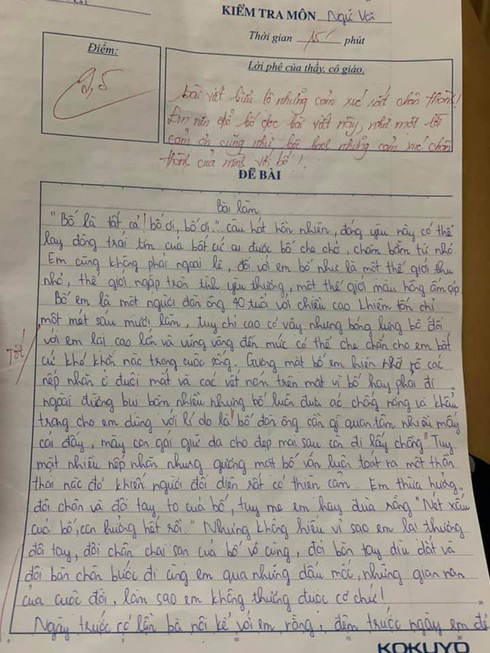 KIỂM TRA MÔN Ngữ Văn
Thời gian 15 phút
Điểm:
Lời phê của thầy, cô giáo.
bài viết biểu lộ những cảm xúc rất chân thành!
Em nên để bố đọc bài viết này, như một lời
cảm ơn cũng như những cảm xúc chân
thành của mình với bố!
ĐỀ BÀI
Bài làm
"Bố là tất cả! bố ơi, bố ơi". câu hát hồn nhiên, đáng yêu này có thể
lay động trái tim của bất cứ ai được bố che chở, chăm bẵm từ nhỏ
Em cũng không phải ngoại lệ, đối với em bố như là một thế giới thu
nhỏ, thế giới ngập tràn tình yêu thương, một thế giới màu hồng ấm áp
Bố em là một người đàn ông 40 tuổi với chiều cao khiêm tốn chỉ
một mét sáu mươi lăm, tuy chỉ cao có vậy nhưng bóng lưng bố đối
Tốt!
với em lại cao lớn và vững vàng đến mức có thể che chắn cho em bất
cứ khó khăn nào trong cuộc sống. Gương mặt bố em hiện rõ các
nếp nhăn ở đuôi mắt và các vết nám trên mặt vì bố hay phải đi
ngoài đường bụi bặm nhiều nhưng bố luôn đưa áo chống nắng và khẩu
trang cho em dùng với lí do là "bố đàn ông cần gì quan tâm nhiều mấy
cái đấy, mày con gái giữ da cho đẹp mai sau còn đi lấy chồng" Tuy
mặt nhiều nếp nhăn nhưng gương mặt bố vẫn luôn toát ra một thần
thái nào đó khiến người đối diện rất có thiện cảm. Em thừa hưởng
đôi chân và đôi tay to của bố, tuy mẹ em hay đùa rằng "Nét xấu
của bố, con hưởng hết rồi." Nhưng không hiểu vì sao em lại thương
đôi tay, đôi chân chai sạn của bố vô cùng, đôi bàn tay dìu dắt và
đôi bàn chân bước đi cùng em qua những dấu mốc, những gian nan
của cuộc đời, làm sao em không thương được cơ chứ!
Ngày trước có lần bà nội kể với em rằng, đêm trước ngày em đẻ
KOKUYO